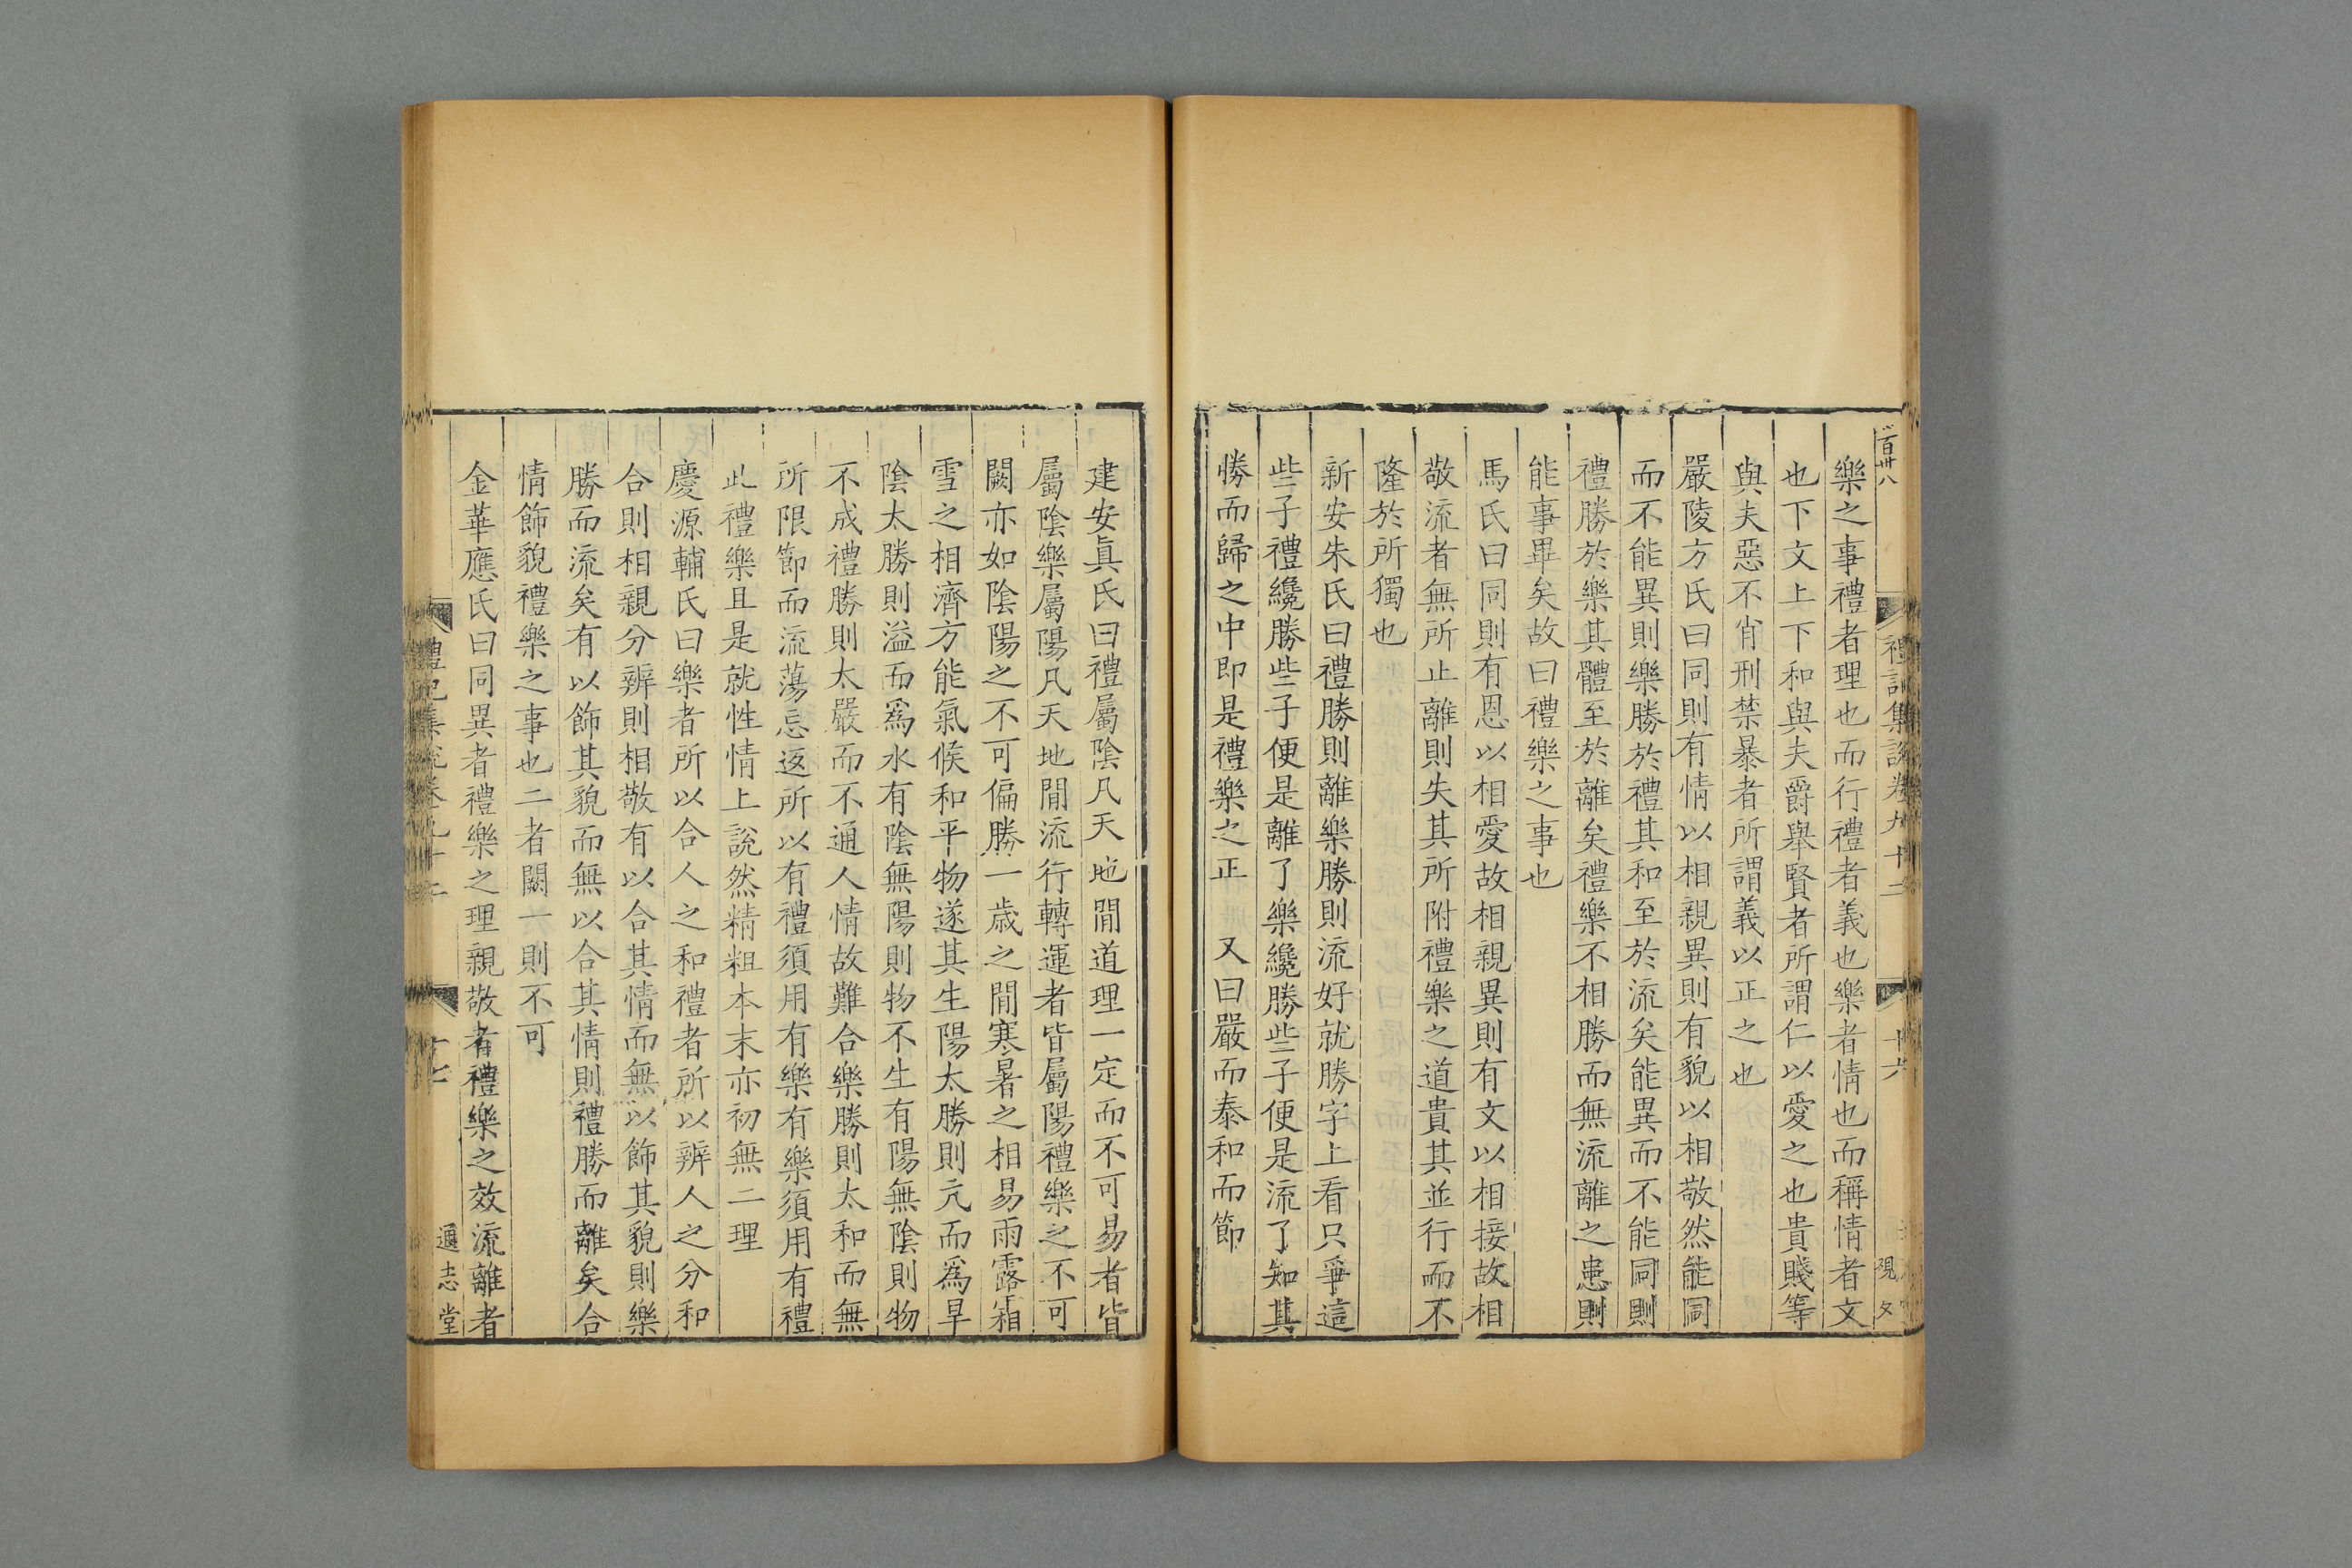 百卅八
禮記集說卷九十二
十六
樂之事禮者理也而行禮者義也樂者情也而稱情者文
也下文上下和與夫爵舉賢者所謂仁以愛之也貴賤等
與夫惡不肖刑禁暴者所謂義以正之也
嚴陵方氏曰同則有情以相親異則有貌以相敬然能同
而不能異則樂勝於禮其和至於流矣能異而不能同則
禮勝於樂其體至於離矣禮樂不相勝而無流離之患則
能事畢矣故曰禮樂之事也
馬氏曰同則有恩以相愛故相親異則有文以相接故相
敬流者無所止離則失其所附禮樂之道貴其並行而不
隆於所獨也
新安朱氏曰禮勝則離樂勝則流好就勝字上看只爭這
些子禮纔勝些子便是離了樂纔勝些子便是流了知其
勝而歸之中即是禮樂之正 又曰嚴而泰和而節
建安眞氏曰禮屬陰凡天地閒道理一定而不可易者皆
屬陰樂屬陽凡天地閒流行轉運者皆屬陽禮樂之不可
闕亦如陰陽之不可偏勝一歲之閒寒暑之相易雨露霜
雪之相濟方能氣候和平物遂其生陽太勝則亢而爲旱
陰太勝則溢而爲水有陰無陽則物不生有陽無陰則物
不成禮勝則太嚴而不通人情故難合樂勝則太和而無
所限節而流蕩忘返所以有禮須用有樂有樂須用有禮
此禮樂且是就性情上說然精粗本末亦初無二理
慶源輔氏曰樂者所以合人之和禮者所以辨人之分和
合則相親分辨則相敬有以合其情而無以飾其貌則樂
勝而流矣有以飾其貌而無以合其情則禮勝而離矣合
情飾貌禮樂之事也二者闕一則不可
金華應氏曰同異者禮樂之理親敬者禮樂之效流離者
禮記集說卷九十二
十七
通志堂